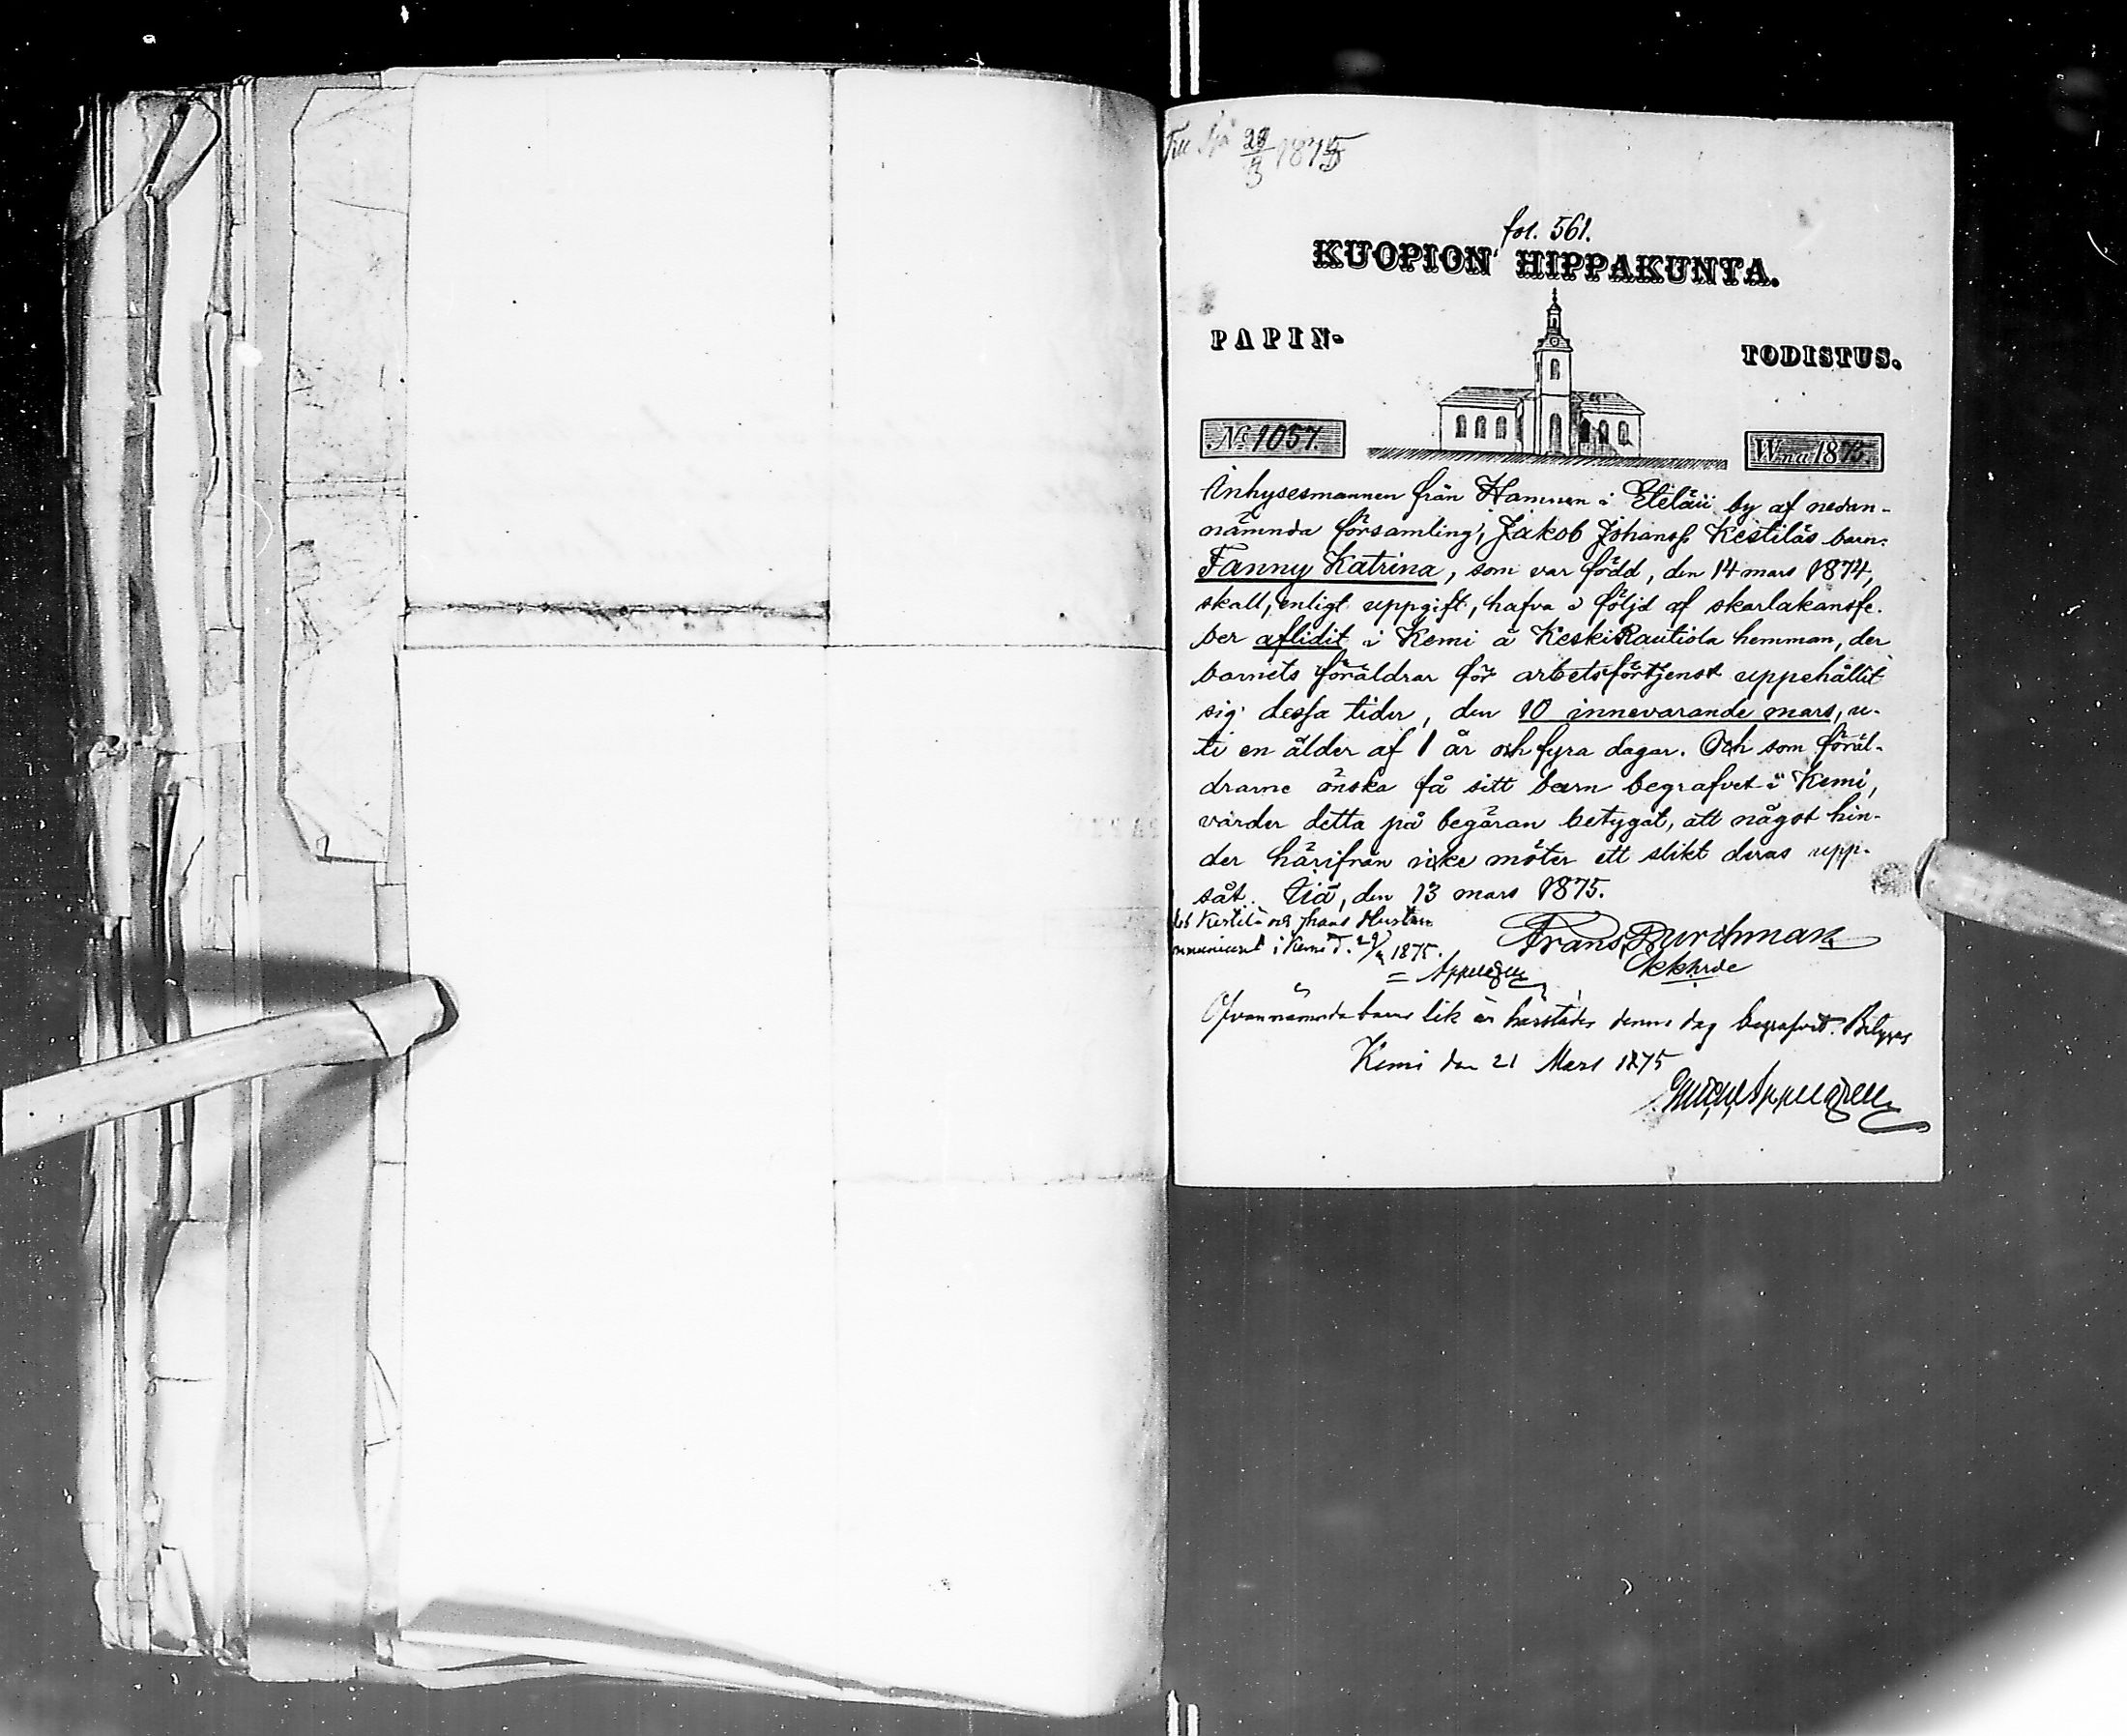 29/3 1875
fol. 561.
KUOPION HIPPAKUNTA.
PAPIN- TODISTUS.
No 1057. Wna 1875.
Inhysesmannen från Hamnen i Eteläii by af nedan-
nämnda församling, Jakob Johanss Kestiläs barn:
Fanny Katrina, som var född, den 14 mars 1874,
skall, enligt uppgift, hafva i följd af skarlakansfe-
ber aflidit i Kemi å KeskiRautiola hemman, der
barnets föräldrar för arbetsförtjenst uppehållit
sig dessa tider, den 10 innevarande mars, u-
ti en ålder af 1 år och fyra dagar. Och som föräl-
drarne önska få sitt barn begrafvet i Kemi,
varder detta på begäran betygat, att något hin-
der härifrån icke möter ett slikt deras upp-
såt. Iiå, den 13 mars 1875.
Kestilä och hans Hustru
i Kemi d. 29/3 1875.
Appelgren
Frans Durchman
Kkhrde
Ofvannämnda barns lik är härstädes denna dag begrafvet. Betygas
Kemi den 21 Mars 1875
Appelgren